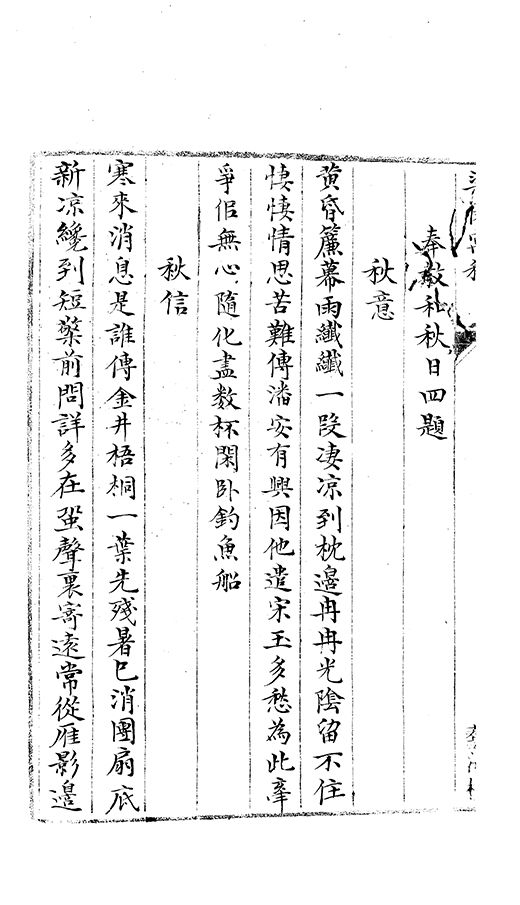 奉教和秋日四題
秋意
黄昏簾幕雨纖纖一段凄凉到枕邉冉冉光陰留不住
悽悽情思苦難傳潘安有興因他遣宋玉多愁為此牽
爭佀無心隨化盡数杯閑卧釣魚船
秋信
寒來消息是誰傳金井梧桐一葉先殘暑已消團扇底
新凉纔到短檠前問詳多在蛩聲裏寄遠常從雁影邉